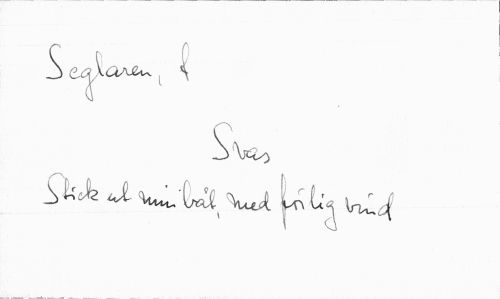 Seglaren, f
Svas
Stick ut min båt, med föilig vind